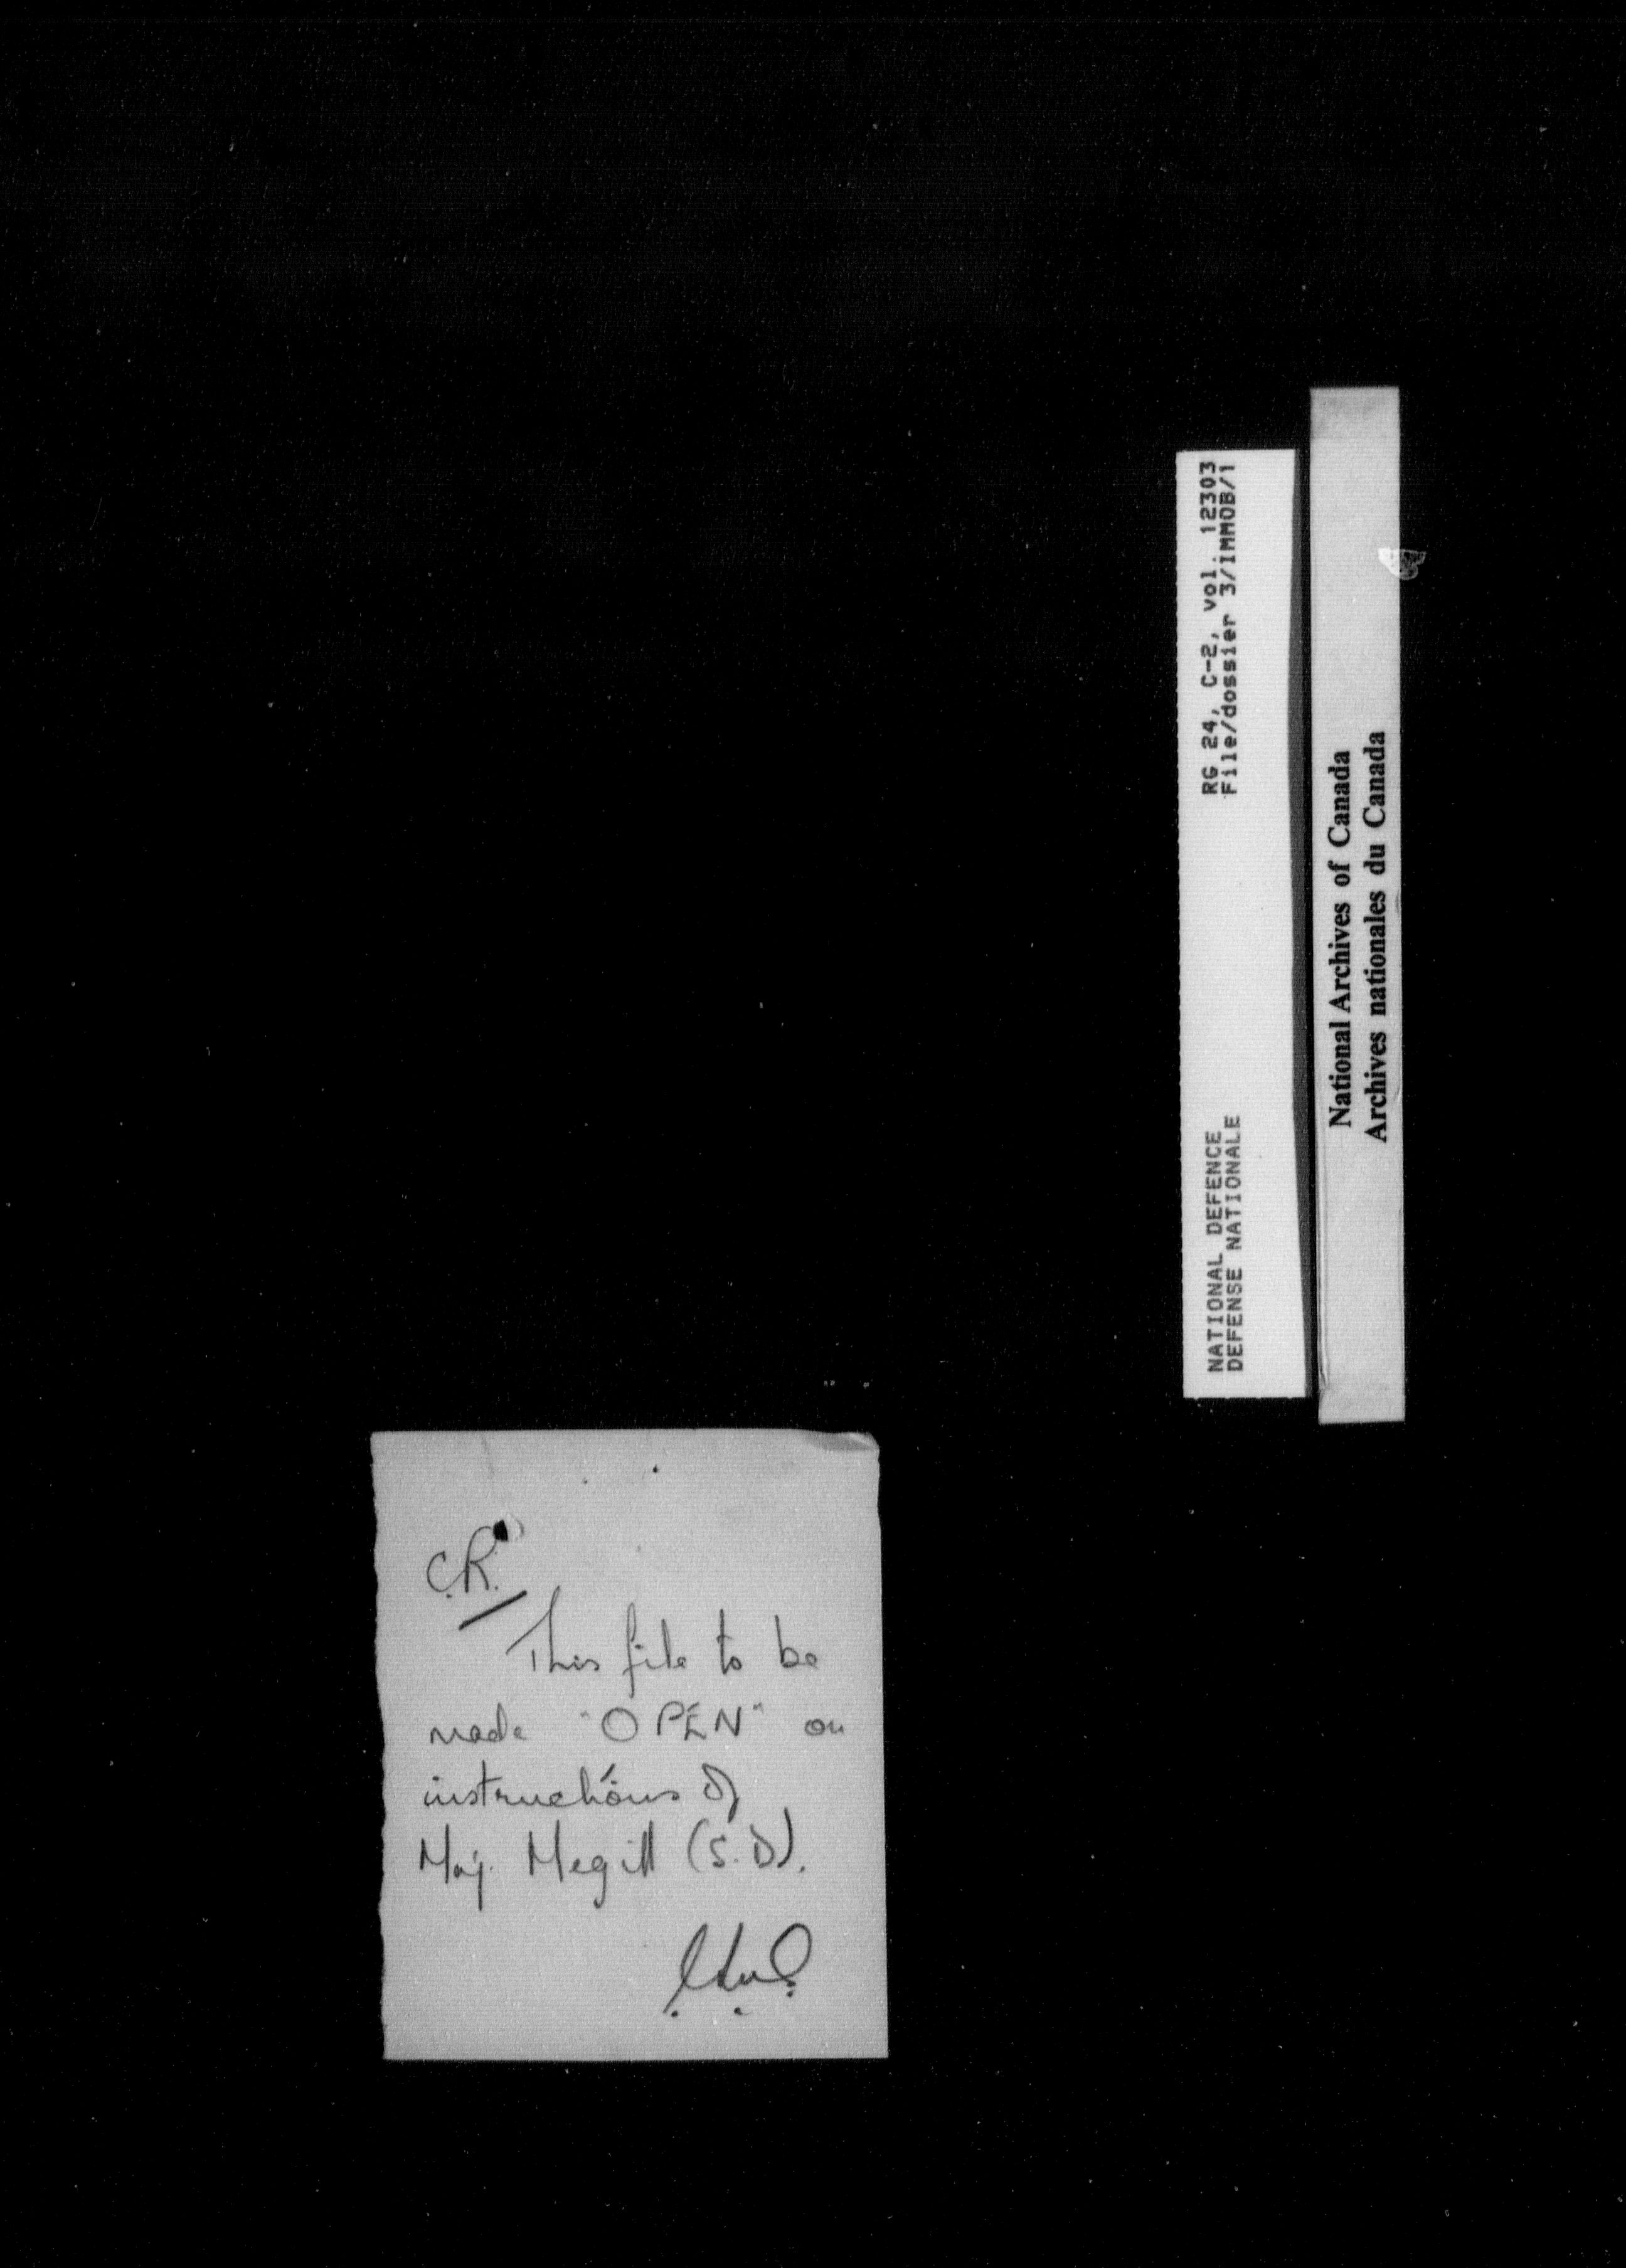 NATIONAL DEFENCE
DEFENSE NATIONALE
RG 24, C-2, vol. 12303
File/dossier 3/IMMOB/1
National Archives of Canada
Archives nationales du Canada
C.R.
This file to be
made "OPEN" on
instructions of
Maj. Megill (S.D).